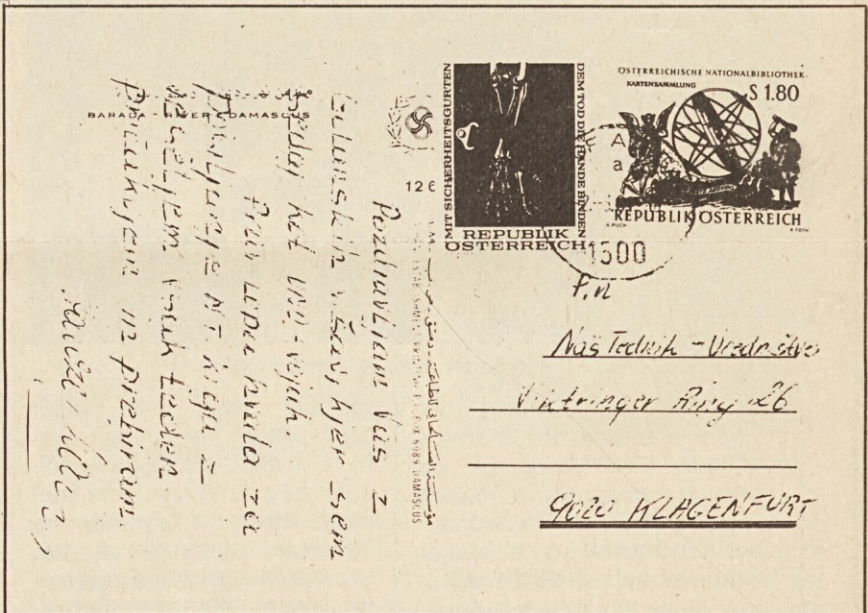 BARADA - RIVER DAMASCUS
Pozdravljam Vas z
Golanskih višav, kjer sem
sedaj kot UNO-vojak.
Prav lepa hvala za
pošiljanje N.T. ki ga z
veseljem vsak teden
pričakujem in prebiram.
126
DAMASCUS
MIT SICHERHEITSGURTEN
DEM TOD DIE HÄNDE BINDEN
REPUBLIK
ÖSTERREICH
ÖSTERREICHISCHE NATIONALBIBLIOTHEK
KARTENSAMMLUNG
S 1.80
REPUBLIK ÖSTERREICH
A
a
1500
P.n.
Naš Tednik - Uredništvo
Viktringer Ring 26
9020 KLAGENFURT